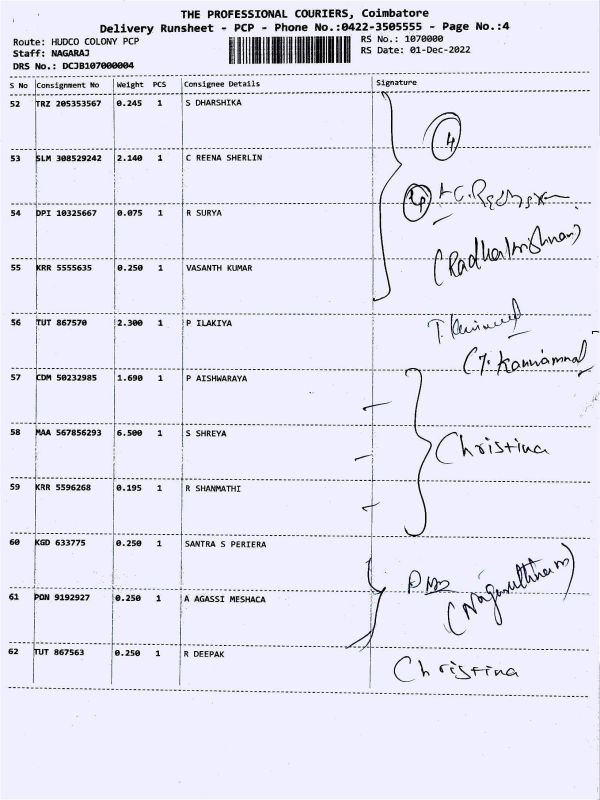 THE PROFESSIONAL COURIERS, Coimbatore
Delivery Runsheet - PCP - Phone No.:0422-3505555 - Page No.:4
Route: HUDCO COLONY PCP
RS No.: 1070000
Staff: NAGARAJ
RS Date: 01-Dec-2022
DRS No.: DCJB107000004
S No Consignment No Weight PCS Consignee Details Signature
52 TRZ 205353567 0.245 1 S DHARSHIKA
4
53 SLM 308529242 2.140 1 C REENA SHERLIN
4
54 DPI 10325667 0.075 1 R SURYA
(Radhakrishnan)
55 KRR 5555635 0.250 1 VASANTH KUMAR
56 TUT 867570 2.300 1 P ILAKIYA
(T. Kanniammal
57 CDM 50232985 1.690 1 P AISHWARAYA
58 MAA 567856293 6.500 1 S SHREYA
Christina
59 KRR 5596268 0.195 1 R SHANMATHI
60 KGD 633775 0.250 1 SANTRA S PERIERA
61 PON 9192927 0.250 1 A AGASSI MESHACA
62 TUT 867563 0.250 1 R DEEPAK
Christina